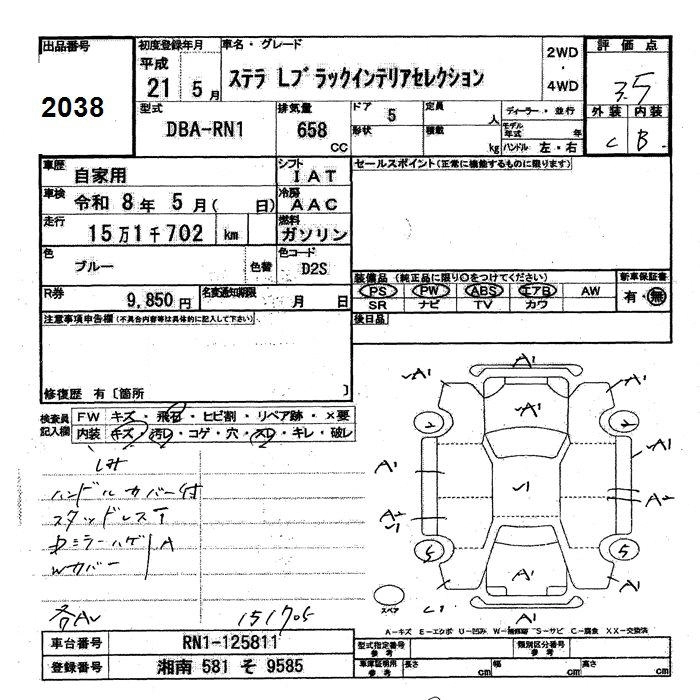 出品番号
2038
初度登録年月
平成
21 5月
車名・グレード
ステラ Lブラックインテリアセレクション
2WD
・
4WD
評価点
3.5
外装 内装
C B
型式
DBA-RN1
排気量
658
CC
ドア 5
形状
定員
人
積載
kg
ディーラー・並行
モデル年式 年
ハンドル 左・右
車歴
自家用
シフト
IAT
セールスポイント(正常に機能するものに限ります)
車検
令和 8年 5月( 日)
冷房
AAC
走行
15万1千702 km
燃料
ガソリン
色
ブルー
色替
色コード
D2S
R券
9,850円
名変通知期限
月 日
装備品 (純正品に限り○をつけてください)
PS PW ABS エアB AW
SR ナビ TV カワ
新車保証書
有・無
注意事項申告欄(不具合内容等は具体的に記入して下さい)
後日品
修復歴 有〔箇所 〕
検査員記入欄
FW キズ・飛石・ヒビ割・リペア跡・×要
内装 キズ・汚レ・コゲ・穴・スレ・キレ・破レ
シミ
ハンドルカバー付
スタッドレスT
ドミラーハゲ A
Wカバー
各A
151705
A1
A1
A1
A1
A1
A1
A1
A2
A2
A1
A1
A1
A1
スペア
A-キズ E-エクボ U-凹み W-補修跡 S-サビ C-腐食 XX-交換済
車台番号
RN1-125811
登録番号
湘南 581 そ 9585
型式指定番号
参考
類別区分番号
参考
車庫証明用
参考
長さ cm
幅 cm
高さ cm